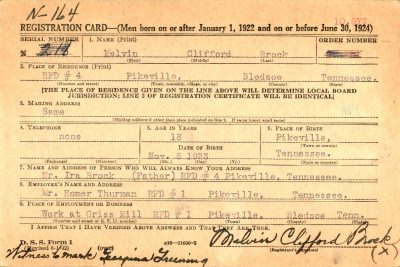 N-164
REGISTRATION CARD—(Men born on or after January 1, 1922 and on or before June 30, 1924)
SERIAL NUMBER 1. NAME (Print) ORDER NUMBER
N Melvin Clifford Brock
(First) (Middle) (Last)
2. PLACE OF RESIDENCE (Print)
RFD # 4 Pikeville, Bledsoe Tennessee.
(Number and street) (Town, township, village, or city) (County) (State)
[THE PLACE OF RESIDENCE GIVEN ON THE LINE ABOVE WILL DETERMINE LOCAL BOARD
JURISDICTION; LINE 2 OF REGISTRATION CERTIFICATE WILL BE IDENTICAL]
3. MAILING ADDRESS
Same
[Mailing address if other than place indicated on line 2. If same insert word same]
4. TELEPHONE 5. AGE IN YEARS 6. PLACE OF BIRTH
none 18 Pikeville,
DATE OF BIRTH (Town or county)
Nov. 8 1923 Tennessee.
(Mo.) (Day) (Yr.) (State or country)
7. NAME AND ADDRESS OF PERSON WHO WILL ALWAYS KNOW YOUR ADDRESS
Mr. Ira Brock (Father) RFD # 4 Pikeville, Tennessee.
8. EMPLOYER'S NAME AND ADDRESS
Mr. Homer Thurman RFD # 1 Pikeville, Tennessee.
9. PLACE OF EMPLOYMENT OR BUSINESS
Work at Criss Mill RFD # 1 Pikeville, Bledsoe Tenn.
(Number and street or R. F. D. number) (Town) (County) (State)
I AFFIRM THAT I HAVE VERIFIED ABOVE ANSWERS AND THAT THEY ARE TRUE.
D. S. S. Form 1
(Revised 6-9-42) Melvin Clifford Brock
Witness to mark (X)